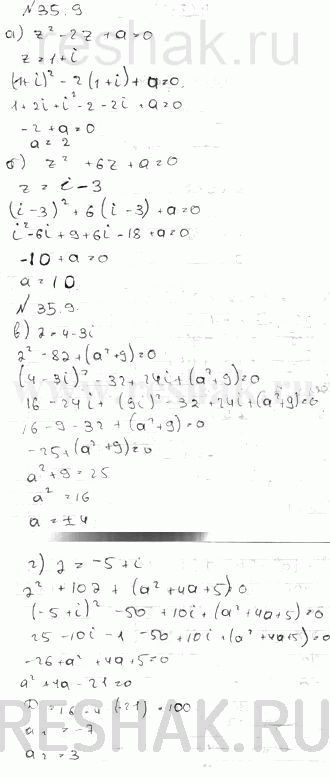 № 35.9
а) z² - 2z + a = 0
z = 1 + i
(1+i)² - 2(1+i) + a = 0
1 + 2i + i² - 2 - 2i + a = 0
-2 + a = 0
a = 2
б) z² + 6z + a = 0
z = i - 3
(i-3)² + 6(i-3) + a = 0
i² - 6i + 9 + 6i - 18 + a = 0
-10 + a = 0
a = 10
№ 35.9.
в) z = 4 - 3i
z² - 8z + (a² + 9) = 0
(4-3i)² - 32 + 24i + (a² + 9) = 0
16 - 24i + (9i)² - 32 + 24i + (a² + 9) = 0
16 - 9 - 32 + (a² + 9) = 0
-25 + (a² + 9) = 0
a² + 9 = 25
a² = 16
a = ±4
г) z = -5 + i
z² + 10z + (a² + 4a + 5) = 0
(-5+i)² - 50 + 10i + (a² + 4a + 5) = 0
25 - 10i - 1 - 50 + 10i + (a² + 4a + 5) = 0
-26 + a² + 4a + 5 = 0
a² + 4a - 21 = 0
D = 16 - 4·(-21) = 100
a₁ = -7
a₂ = 3
reshak.ru
reshak.ru
RESHAK.RU